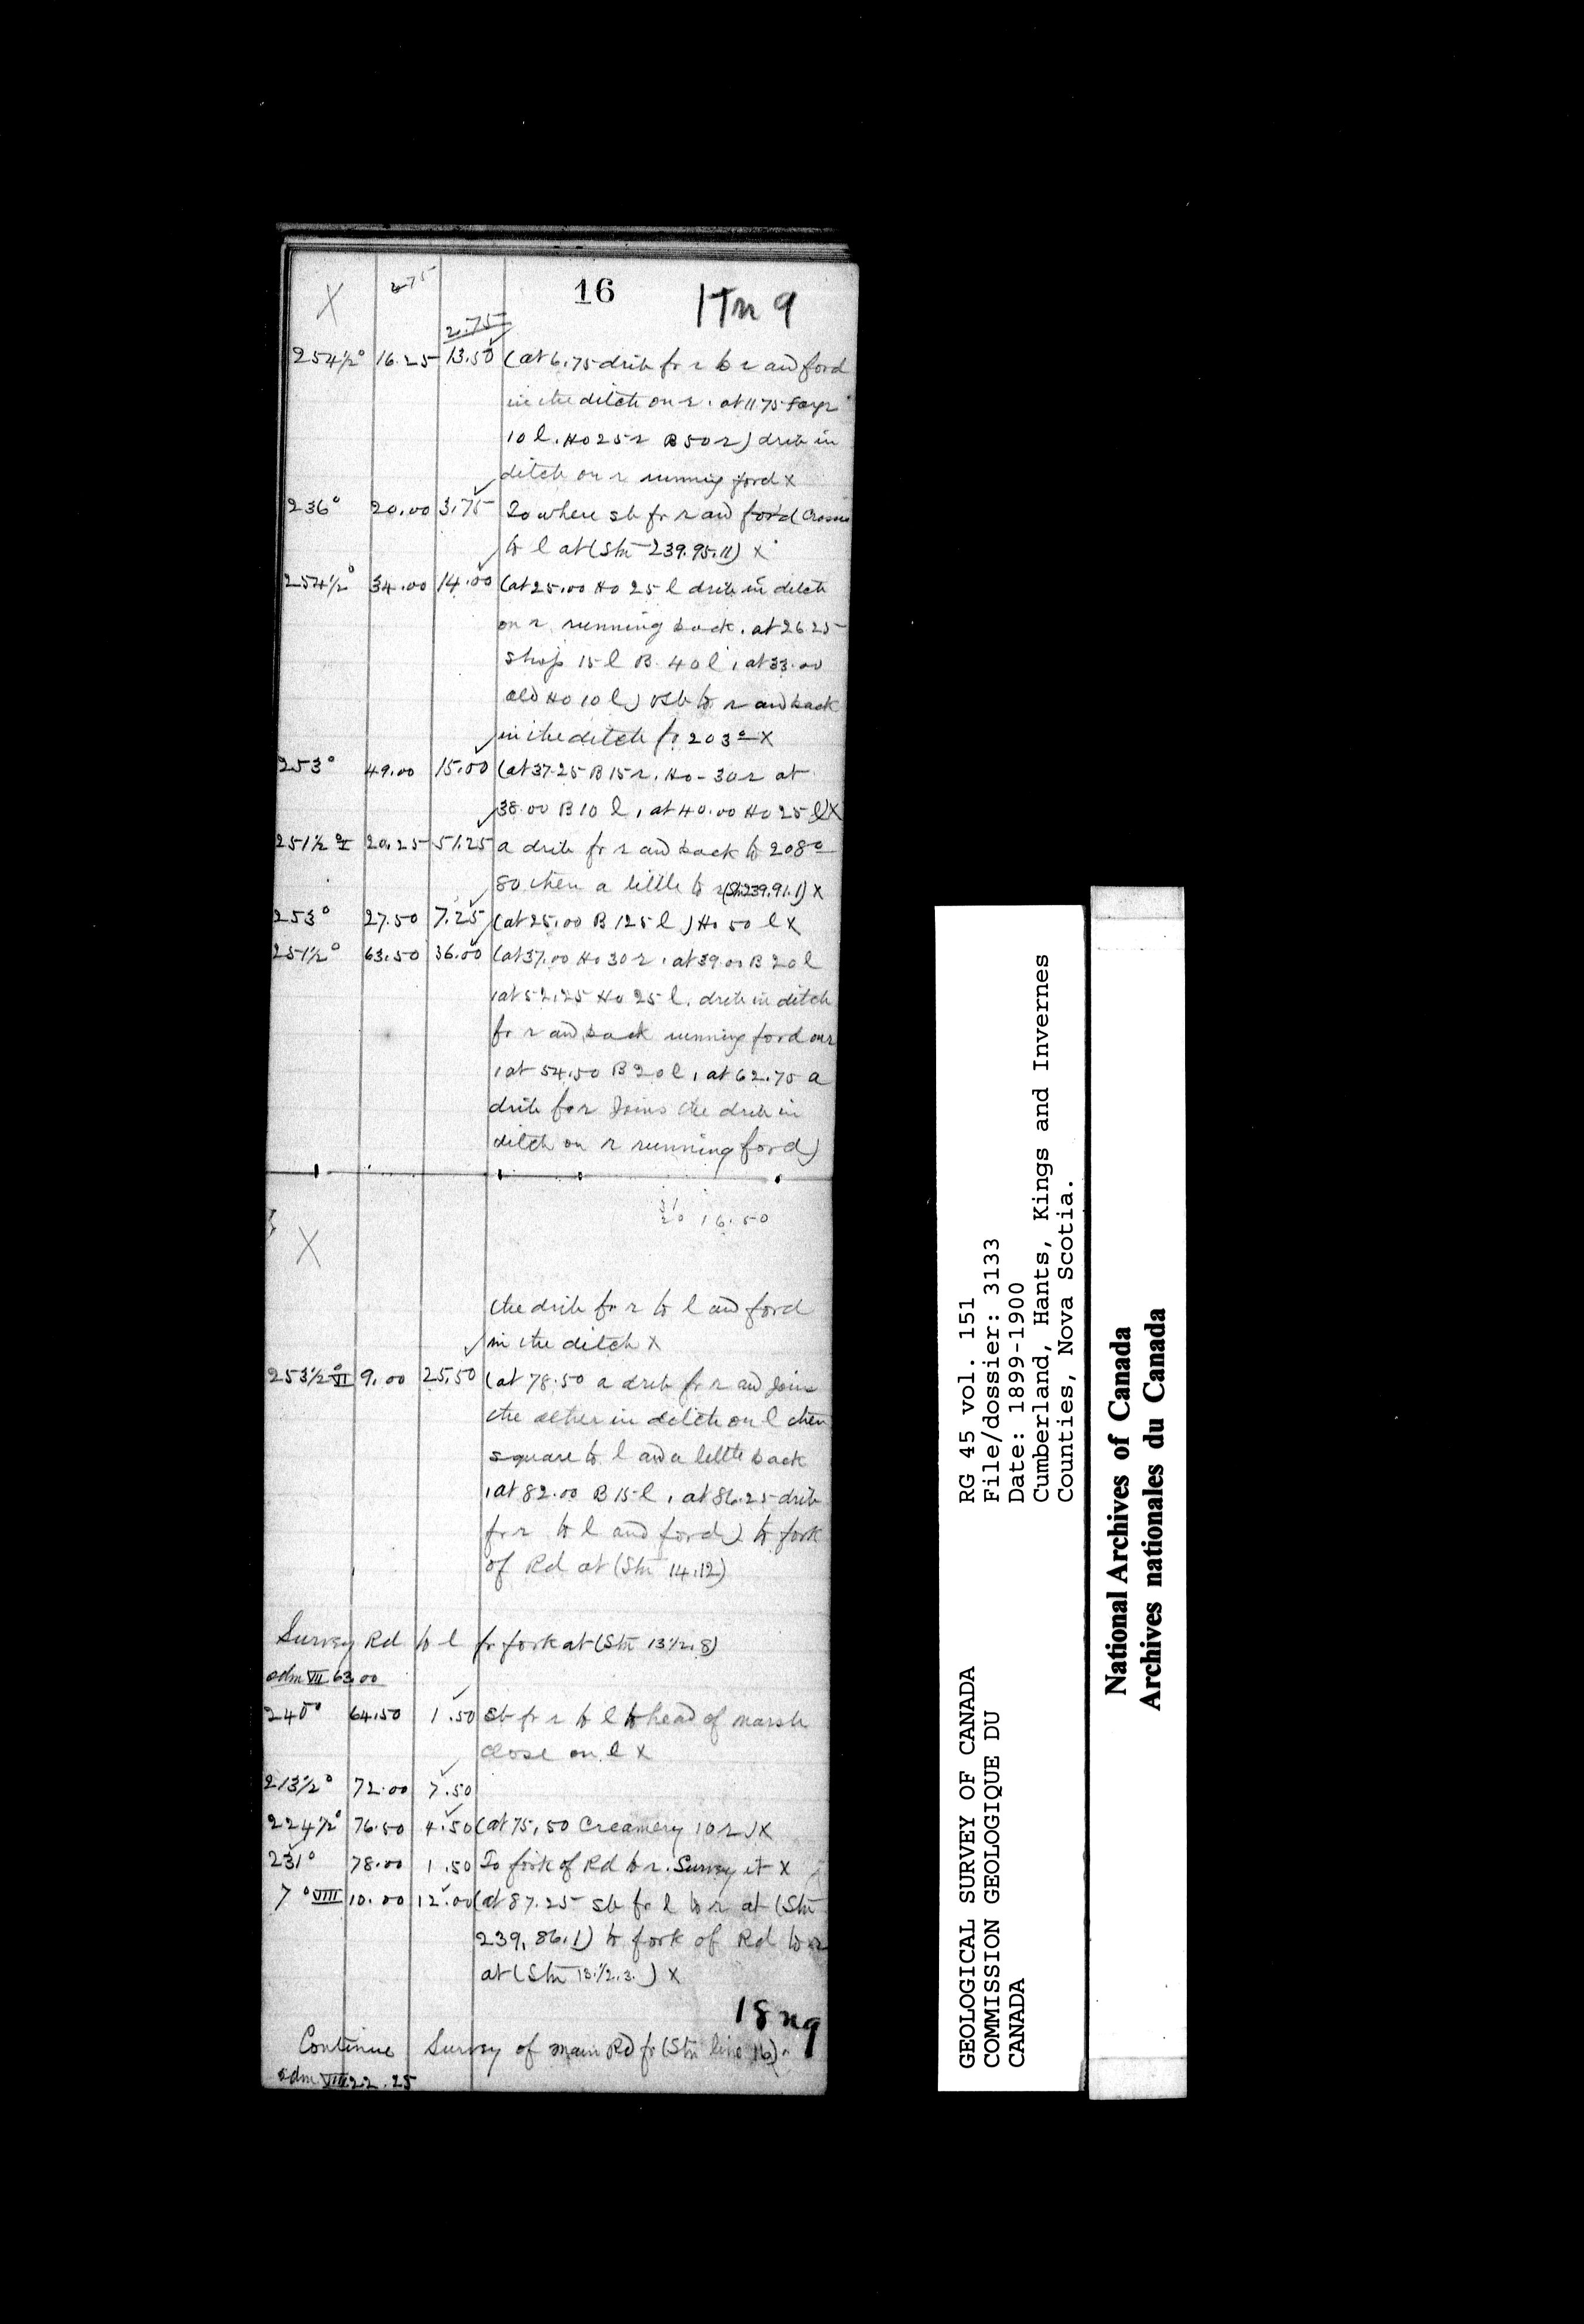 16
X 2.75 17n 9
2.75
254½° 16.25 13.50 (at 6.75 drib fr r to r and ford
in the ditch on r. at 11.75
10 l. Ho 25 r B 50 r) drib in
ditch on r running ford X
236° 20.00 3.75 To where sb fr r and ford
to l at (Stn 239.95.11) X
254½° 34.00 14.00 (at 25.00 Ho 25 l drib in ditch
on r running back. at 26.25
shop 15 l B. 40 l, at 33.00
old Ho 10 l) to r and back
in the ditch fr 203° X
253° 49.00 15.00 (at 37.25 B 15 r. Ho - 30 r at
38.00 B 10 l, at 40.00 Ho 25 l) X
251½° V 20.25 51.25 a drib fr r and back to 208°
80 then a little to r (Stn 239.91.1) X
253° 27.50 7.25 (at 25.00 B 125 l) Ho 50 l X
251½° 63.50 36.00 (at 37.00 Ho 30 r. at 39.00 B 20 l
, at 52.25 Ho 25 l. drib in ditch
fr r and back running ford on r
, at 54.50 B 20 l, at 62.75 a
drib fr r Joins the drib in
ditch on r running ford)
16.50
X
the drib fr r to l and ford
in the ditch X
253½° VI 9.00 25.50 (at 78.50 a drib fr r and Joins
the other in ditch on l then
square to l and a little back
, at 82.00 B 15 l, at 86.25 drib
fr r to l and ford) to fork
of Rd at (Stn 14.12)
Survey Rd to l fr fork at (Stn 13½.8)
odm VII 63.00
240° 64.50 1.50 Sb fr r to l to head of marsh
close on l X
213½° 72.00 7.50
224½° 76.50 4.50 (at 75.50 Creamery 10 r) X
231° 78.00 1.50 To fork of Rd to r. Survey it X
7° VIII 10.00 12.00 (at 87.25 sb fr l to r at (Stn
239.86.1) to fork of Rd to r
at (Stn 13½.3.) X
18 n 9
Continue Survey of main Rd fr (Stn line 16)
odm VIII 22.25
GEOLOGICAL SURVEY OF CANADA
COMMISSION GEOLOGIQUE DU
CANADA
RG 45 vol. 151
File/dossier: 3133
Date: 1899-1900
Cumberland, Hants, Kings and Invernes
Counties, Nova Scotia.
National Archives of Canada
Archives nationales du Canada